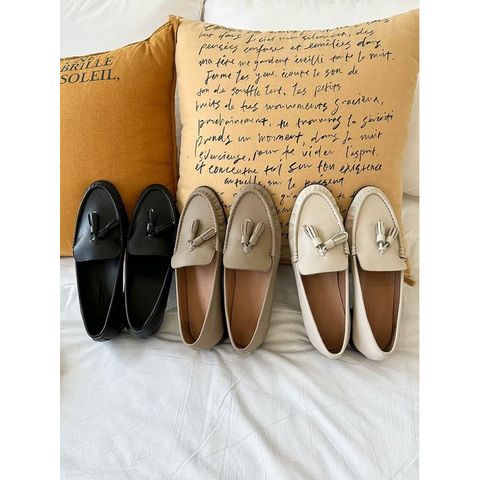 BRILLE
SOLEIL,
dans ciel
pensées confuse et emmêlées dans
ma tête me gardent éveillé toute le nuit.
Ferme les yeux, écoute le son de
ton de souffle lent, les petits
bruits de tes mouvements gracieux,
prochainement, tu trouveras la sérénité
prends un moment, dans la nuit
silencieuse, pour te vider l'esprit,
et concentre toi sur ton existence
actuelle sur le present